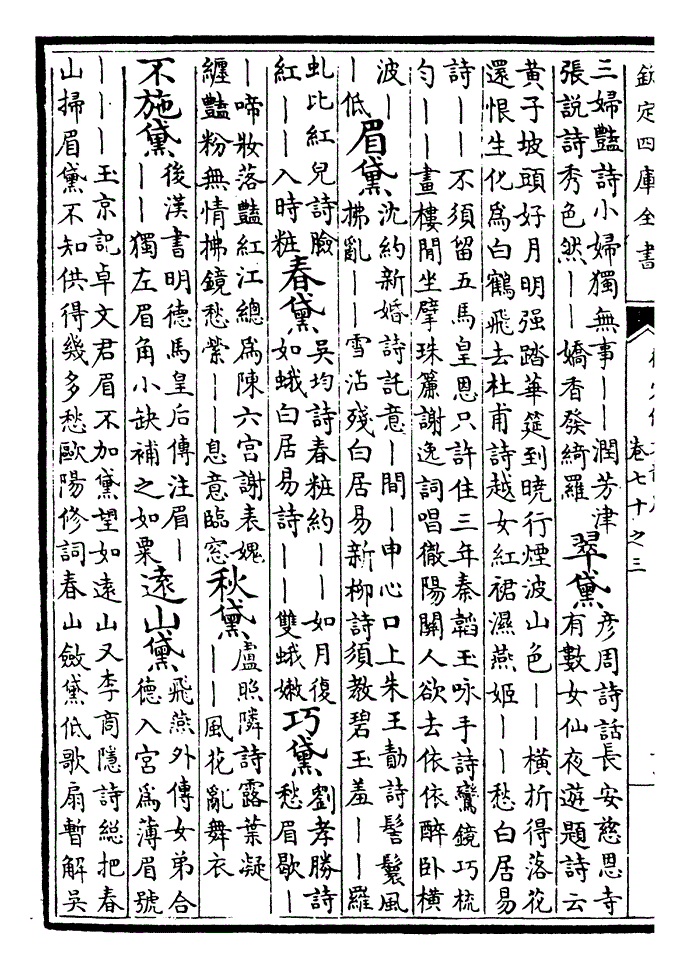 欽定四庫全書
卷七十之三
三婦豔詩小婦獨無事——潤芳津
張説詩秀色然——嬌香發綺羅
翠黛
彦周詩話長安慈恩寺
有數女仙夜遊題詩云
黄子坡頭好月明强踏華筵到曉行煙波山色——橫折得落花
還恨生化爲白鶴飛去杜甫詩越女紅裙濕燕姬——愁白居易
詩——不須留五馬皇恩只許住三年秦韜玉咏手詩鸞鏡巧梳
勻——畫樓閒坐擘珠簾謝逸詞唱徹陽關人欲去依依醉卧橫
波—
—低
眉黛
沈約新婚詩託意—間—申心口上朱王勣詩髻鬟風
拂亂——雪沾殘白居易新柳詩須教碧玉羞——羅
虬比紅兒詩臉
紅——入時粧
春黛
吳均詩春粧約——如月復
如蛾白居易詩——雙蛾嫩
巧黛
劉孝勝詩
愁眉歇—
—啼妝落豔紅江總爲陳六宫謝表媿
纏豔粉無情拂鏡愁縈——息意臨窓
秋黛
盧照隣詩露葉凝
——風花亂舞衣
不施黛
後漢書明德馬皇后傳注眉—
——獨左眉角小缺補之如粟
遠山黛
飛燕外傳女弟合
德入宫爲薄眉號
———玉京記卓文君眉不加黛望如遠山又李商隱詩總把春
山掃眉黛不知供得幾多愁歐陽修詞春山斂黛低歌扇暫解吳